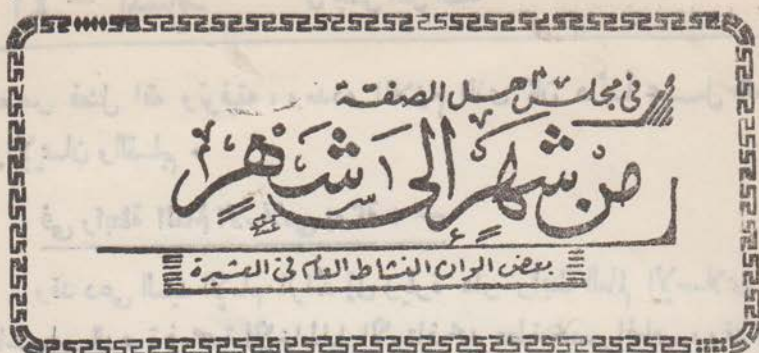 فى مجلس أهل الصفة
من شهر إلى شهر
بعض الوان النشاط العام فى العشيرة